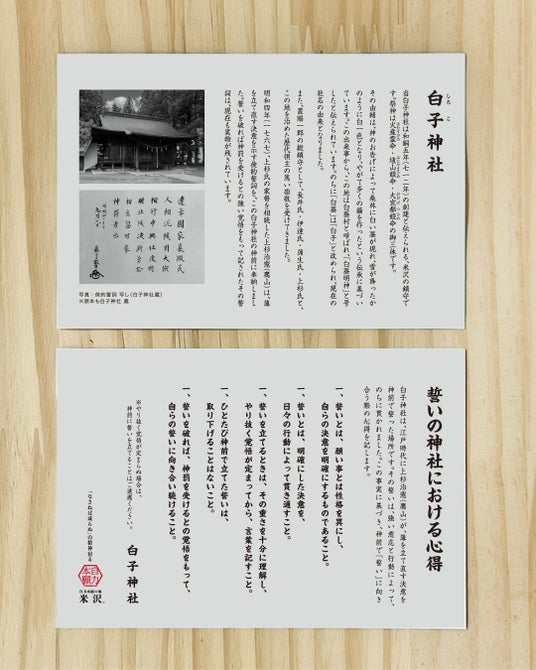 白子神社
しろこ
当白子神社は和銅五年(七一二年)の創建と伝えられる、米沢の鎮守で
す。祭神は火産霊命・埴山姫命・大宮姫命の御三体です。
その由緒は、神のお告げによって桑林に白い蚕が現れ、雪が降ったか
のように白一色となり、やがて多くの繭を作ったという伝承に基づい
ています。この出来事から、この地は白蚕村と呼ばれ、「白蚕明神」と号
したと伝えられています。のちに「白蚕」は「白子」と改められ、現在の
社名の由来となりました。
また、置賜一郡の総鎮守として、長井氏・伊達氏・蒲生氏・上杉氏と、
この地を治めた歴代領主の篤い崇敬を受けてきました。
明和四年(一七六七)、上杉氏の家督を相続した上杉治憲(鷹山)は、藩
を立て直す決意を示す倹約誓詞を、この白子神社の神前に奉納しまし
た。誓いを破れば神罰を受けるとの強い覚悟をもって記されたその誓
詞は、現在も実物が残されています。
写真:倹約誓詞 写し(白子神社蔵)
※原本も白子神社 蔵
誓いの神社における心得
白子神社は、江戸時代に上杉治憲(鷹山)が、藩を立て直す決意を
神前で誓った場所です。その誓いは、強い意志と行動によって、
のちに貫かれました。この事実に基づき、神前で「誓い」に向き
合う際の心得を記します。
一、誓いとは、願い事とは性格を異にし、
自らの決意を明確にするものであること。
一、誓いとは、明確にした決意を、
日々の行動によって貫き通すこと。
一、誓いを立てるときは、その重さを十分に理解し、
やり抜く覚悟が定まってから、言葉を記すこと。
一、ひとたび神前で立てた誓いは、
取り下げることはないこと。
一、誓いを破れば、神罰を受けるとの覚悟をもって、
自らの誓いに向き合い続けること。
※やり抜く覚悟が定まらぬ場合は、
神前に誓いを立てることはご遠慮ください。
白子神社
「なさねば成らぬ」の精神宿る
自力本願
米沢